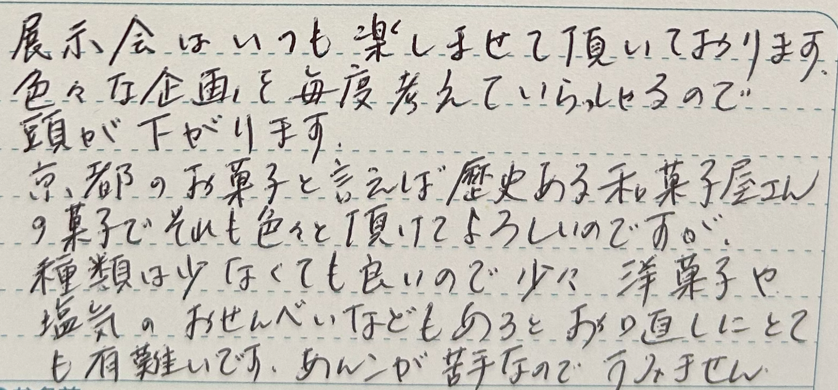 展示会はいつも楽しませて頂いております。
色々な企画を毎度考えていらっしゃるので
頭が下がります。
京都のお菓子と言えば歴史ある和菓子屋さん
の菓子でそれも色々と頂けてよろしいのですが、
種類は少なくても良いので少々 洋菓子や
塩気のおせんべいなどもあるとお口直しにとて
も有難いです。あんこが苦手なので すみません